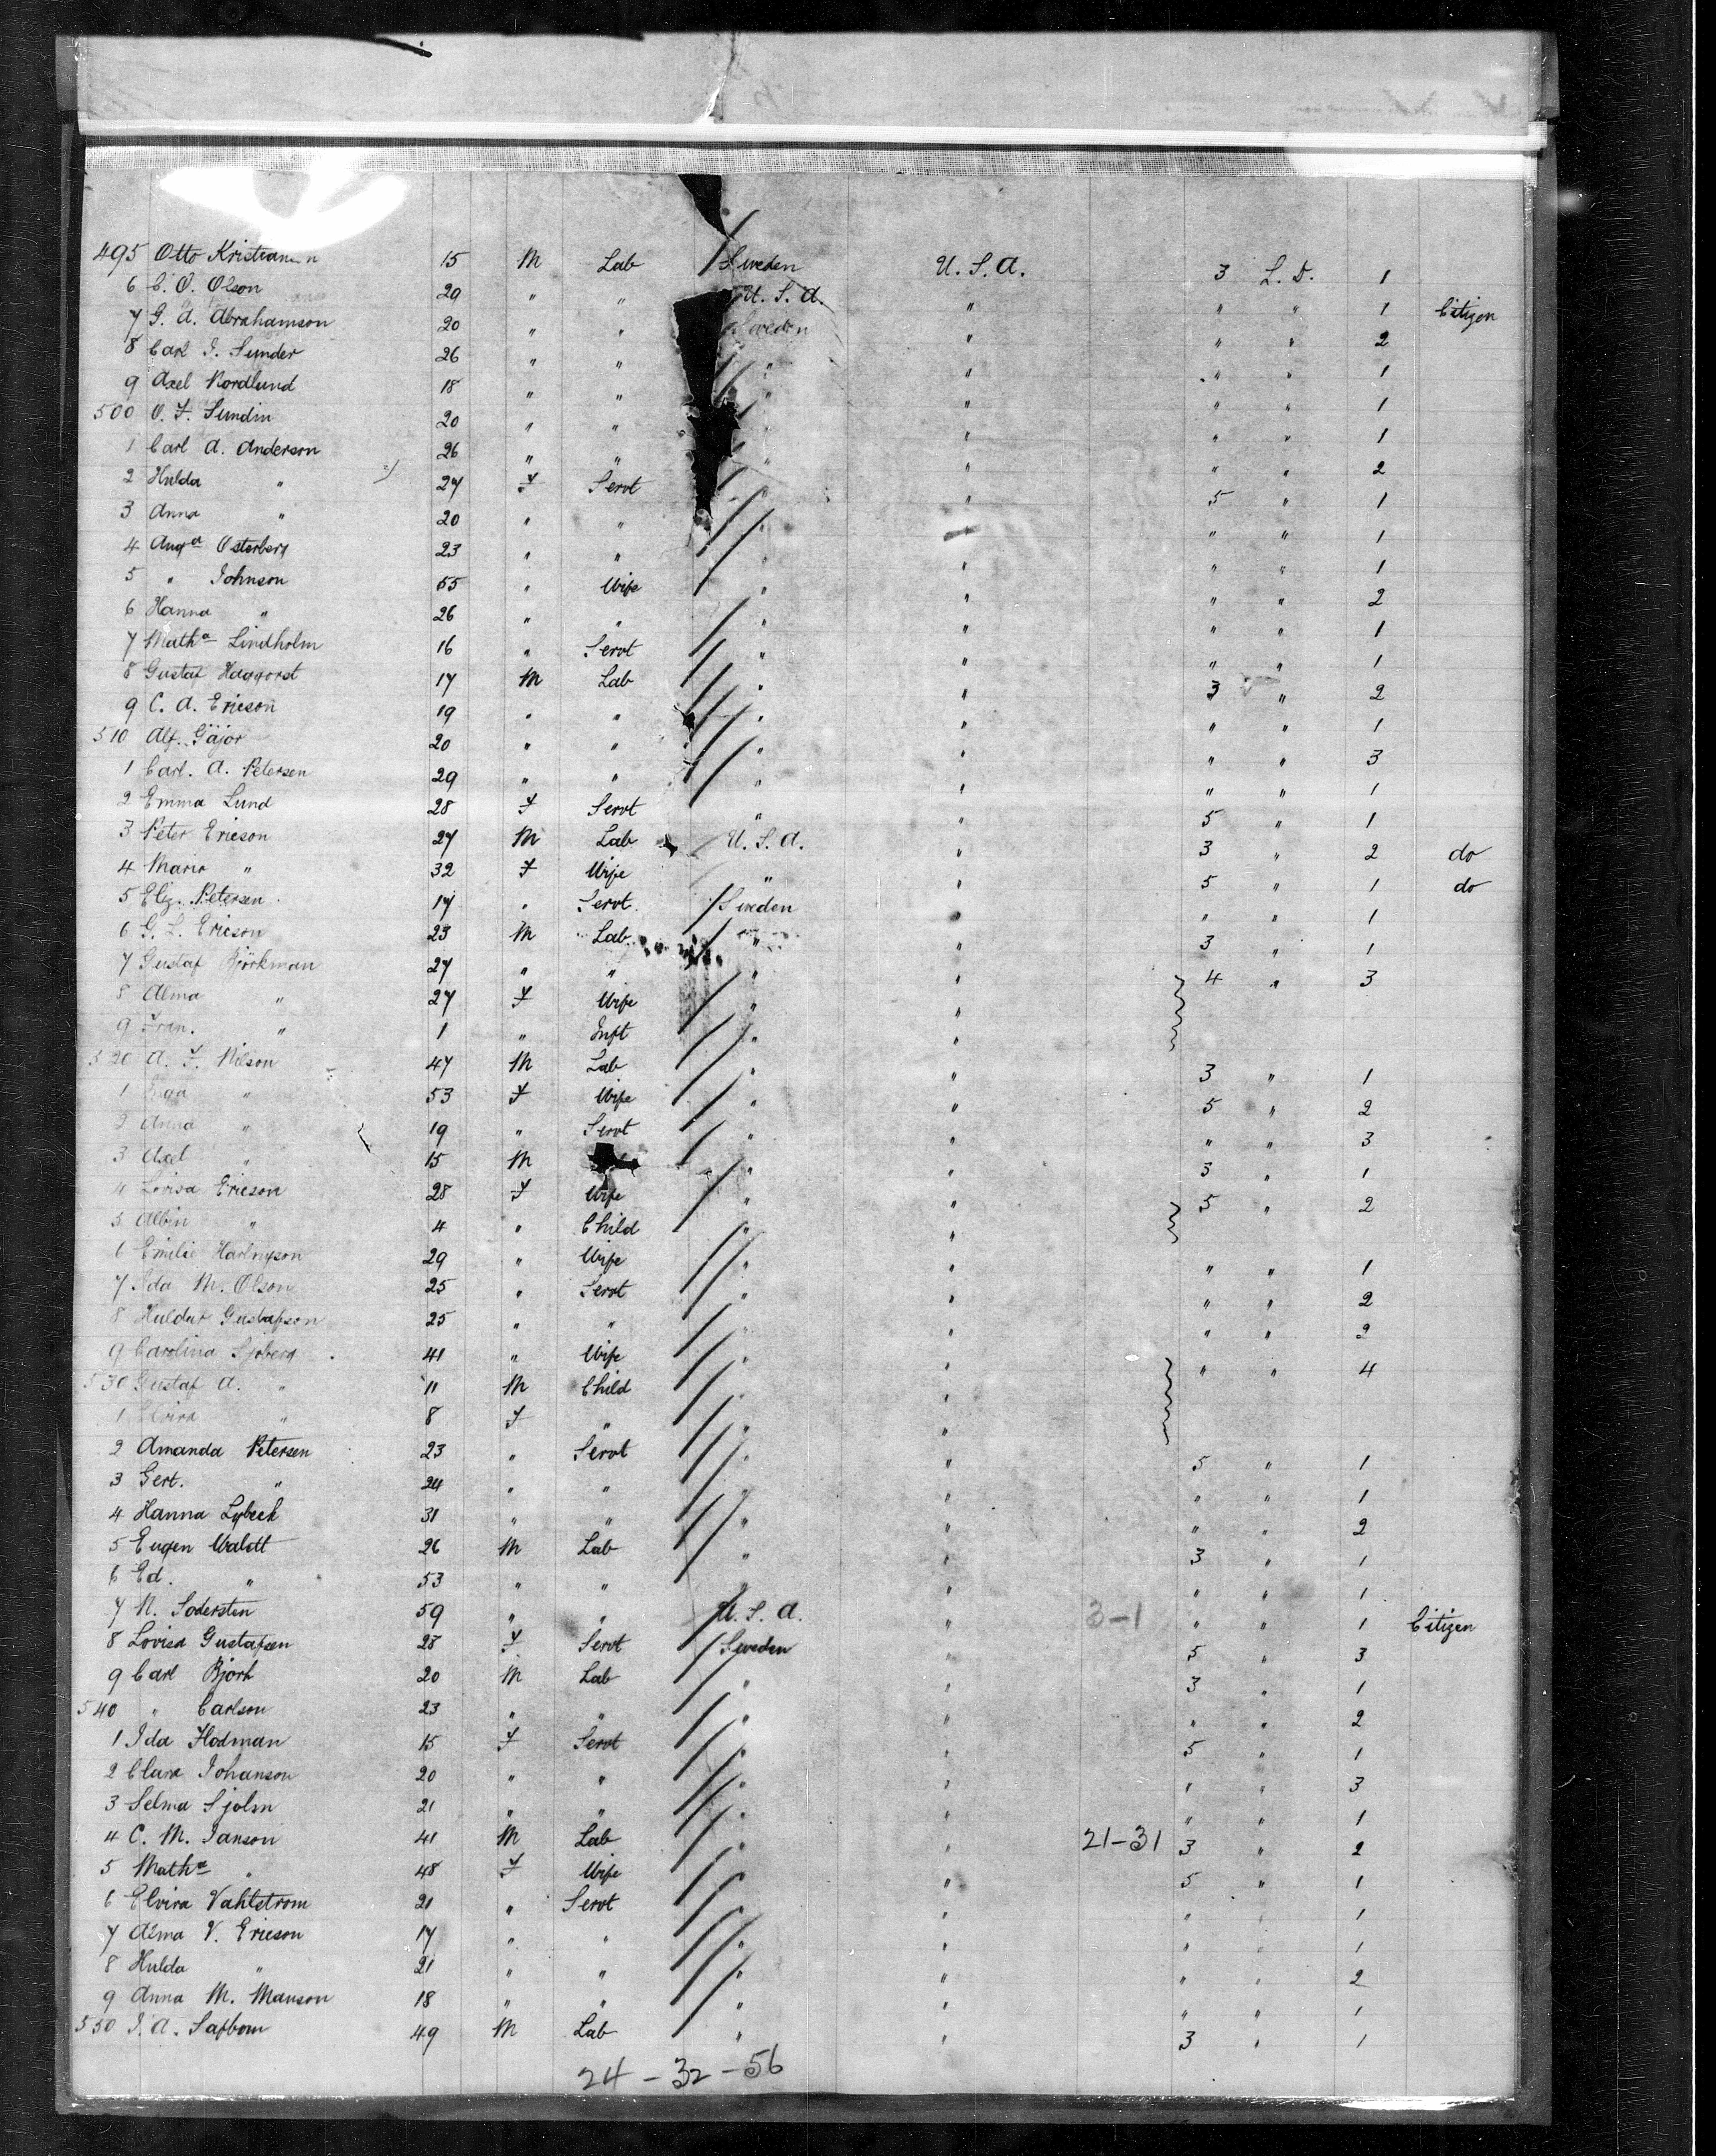 495 Otto Kristiansen 15 M Lab Sweden U. S. A. 3 L. D. 1
6 C. O. Olson 29 " " U. S. A. " " " 1 Citizen
7 G. A. Abrahamson 20 " " Sweden " " " 2
8 Carl J. Sunder 26 " " " " " " 1
9 Axel Nordlund 18 " " " " " " 1
500 O. F. Sundin 20 " " " " " " 1
1 Carl A. Anderson 26 " " " " " " 2
2 Hulda " 27 F Servt " " 5 " 1
3 Anna " 20 " " " " " 1
4 Auga Osterberg 23 " " " " " " 1
5 " Johnson 55 " Wife " " " " 2
6 Hanna " 26 " " " " " " 1
7 Matha Lindholm 16 " Servt " " " " 1
8 Gustaf Haggorst 17 M Lab " " 3 " 2
9 C. A. Ericson 19 " " " " " " 1
510 Alf. Gäjor 20 " " " " " " 3
1 Carl. A. Petersen 29 " " " " " " 1
2 Emma Lund 28 F Servt " " 5 " 1
3 Peter Ericson 27 M Lab U. S. A. " 3 " 2 do
4 Maria " 32 F Wife " " 5 " 1 do
5 Eliz. Petersen 17 " Servt Sweden " " " 1
6 G. L. Ericson 23 M Lab " " 3 " 1
7 Gustaf Björkman 27 " " " " 4 " 3
8 Alma " 27 F Wife " "
9 Fran. " 1 " Inft " "
520 A. F. Nilson 47 M Lab " " 3 " 1
1 " 53 F Wife " " 5 " 2
2 Anna " 19 " Servt " " " " 3
3 Axel " 15 M " " 3 " 1
4 Lovisa Ericson 28 F Wife " " 5 " 2
5 Albin " 4 " Child " "
6 Emilie 29 " Wife " " " " 1
7 Ida M. Olson 25 " Servt " " " " 2
8 Huldur Gustafson 25 " " " " " " 2
9 Carolina Sjoberg 41 " Wife " " " " 4
530 Gustaf A. " 11 M Child " "
1 Elvira " 8 F " " "
2 Amanda Petersen 23 " Servt " " 5 " 1
3 Gert. " 24 " " " " " " 1
4 Hanna Lybeck 31 " " " " " " 2
5 Eugen Walett 26 M Lab " " 3 " 1
6 Ed. " 53 " " " " " " 1
7 N. Sodersten 59 " " U. S. A. " 3-1 " " 1 Citizen
8 Lovisa Gustafsen 28 F Servt Sweden " 5 " 3
9 Carl Bjork 20 M Lab " " 3 " 1
540 " Carlson 23 " " " " " " 2
1 Ida Hodman 15 F Servt " " 5 " 1
2 Clara Johanson 20 " " " " " " 3
3 Selma Sjolm 21 " " " " " " 1
4 C. M. Janson 41 M Lab " " 21-31 3 " 2
5 Matha " 48 F Wife " " 5 " 1
6 Elvira Vahlstrom 21 " Servt " " " " 1
7 Alma V. Ericson 17 " " " " " " 1
8 Hulda " 21 " " " " " " 2
9 Anna M. Manson 18 " " " " " " 1
550 J. A. Safbom 49 M Lab " " 3 " 1
24 - 32 - 56